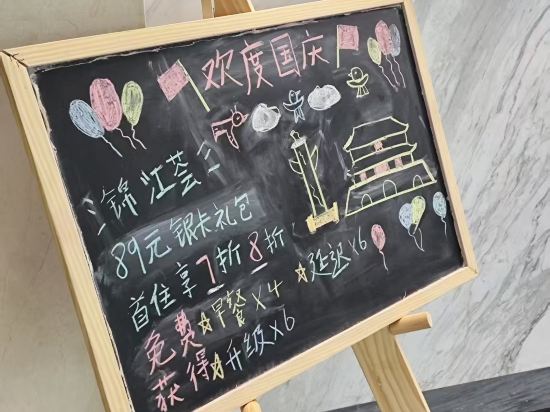 欢度国庆
锦江荟
89元银卡礼包
首住享7折8折
免费☆早餐×4 ☆延迟×6
获得☆升级×6